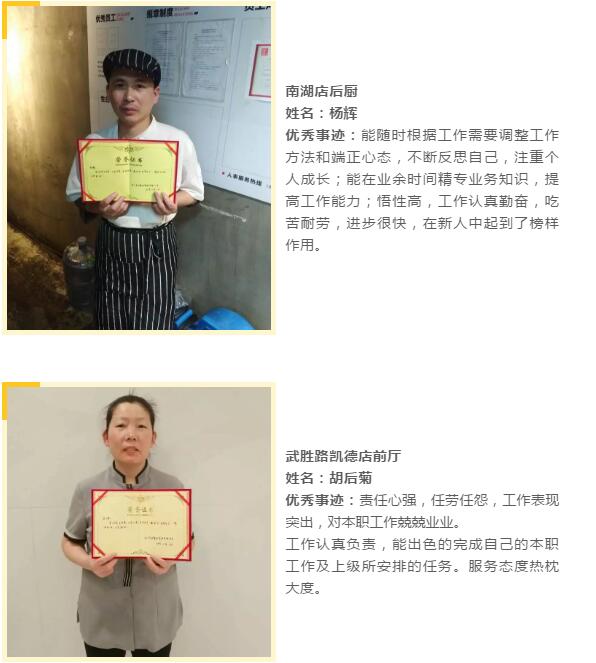 优秀员工
报章制度
荣誉证书
人事服务热线
南湖店后厨
姓名：杨辉
优秀事迹：能随时根据工作需要调整工作
方法和端正心态，不断反思自己，注重个
人成长；能在业余时间精专业务知识，提
高工作能力；悟性高，工作认真勤奋，吃
苦耐劳，进步很快，在新人中起到了榜样
作用。
荣誉证书
武胜路凯德店前厅
姓名：胡后菊
优秀事迹：责任心强，任劳任怨，工作表现
突出，对本职工作兢兢业业。
工作认真负责，能出色的完成自己的本职
工作及上级所安排的任务。服务态度热枕
大度。